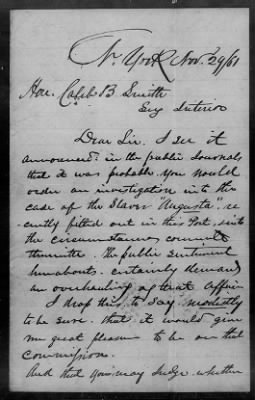 N. York Nov. 29/61
Hon. Caleb B Smith
Secy Interior
Dear Sir. I see it
announced in the public Journals
that it was probable you would
order an investigation into the
case of the Slaver "Augusta" re
cently fitted out in this Port, into
the circumstances connected
therewith. the public sentiment
hereabouts certainly demands
an overhauling of that affair
I drop this, to say modestly
to be sure. that it would give
me great pleasure to be on that
Commission.
And that you may Judge whether